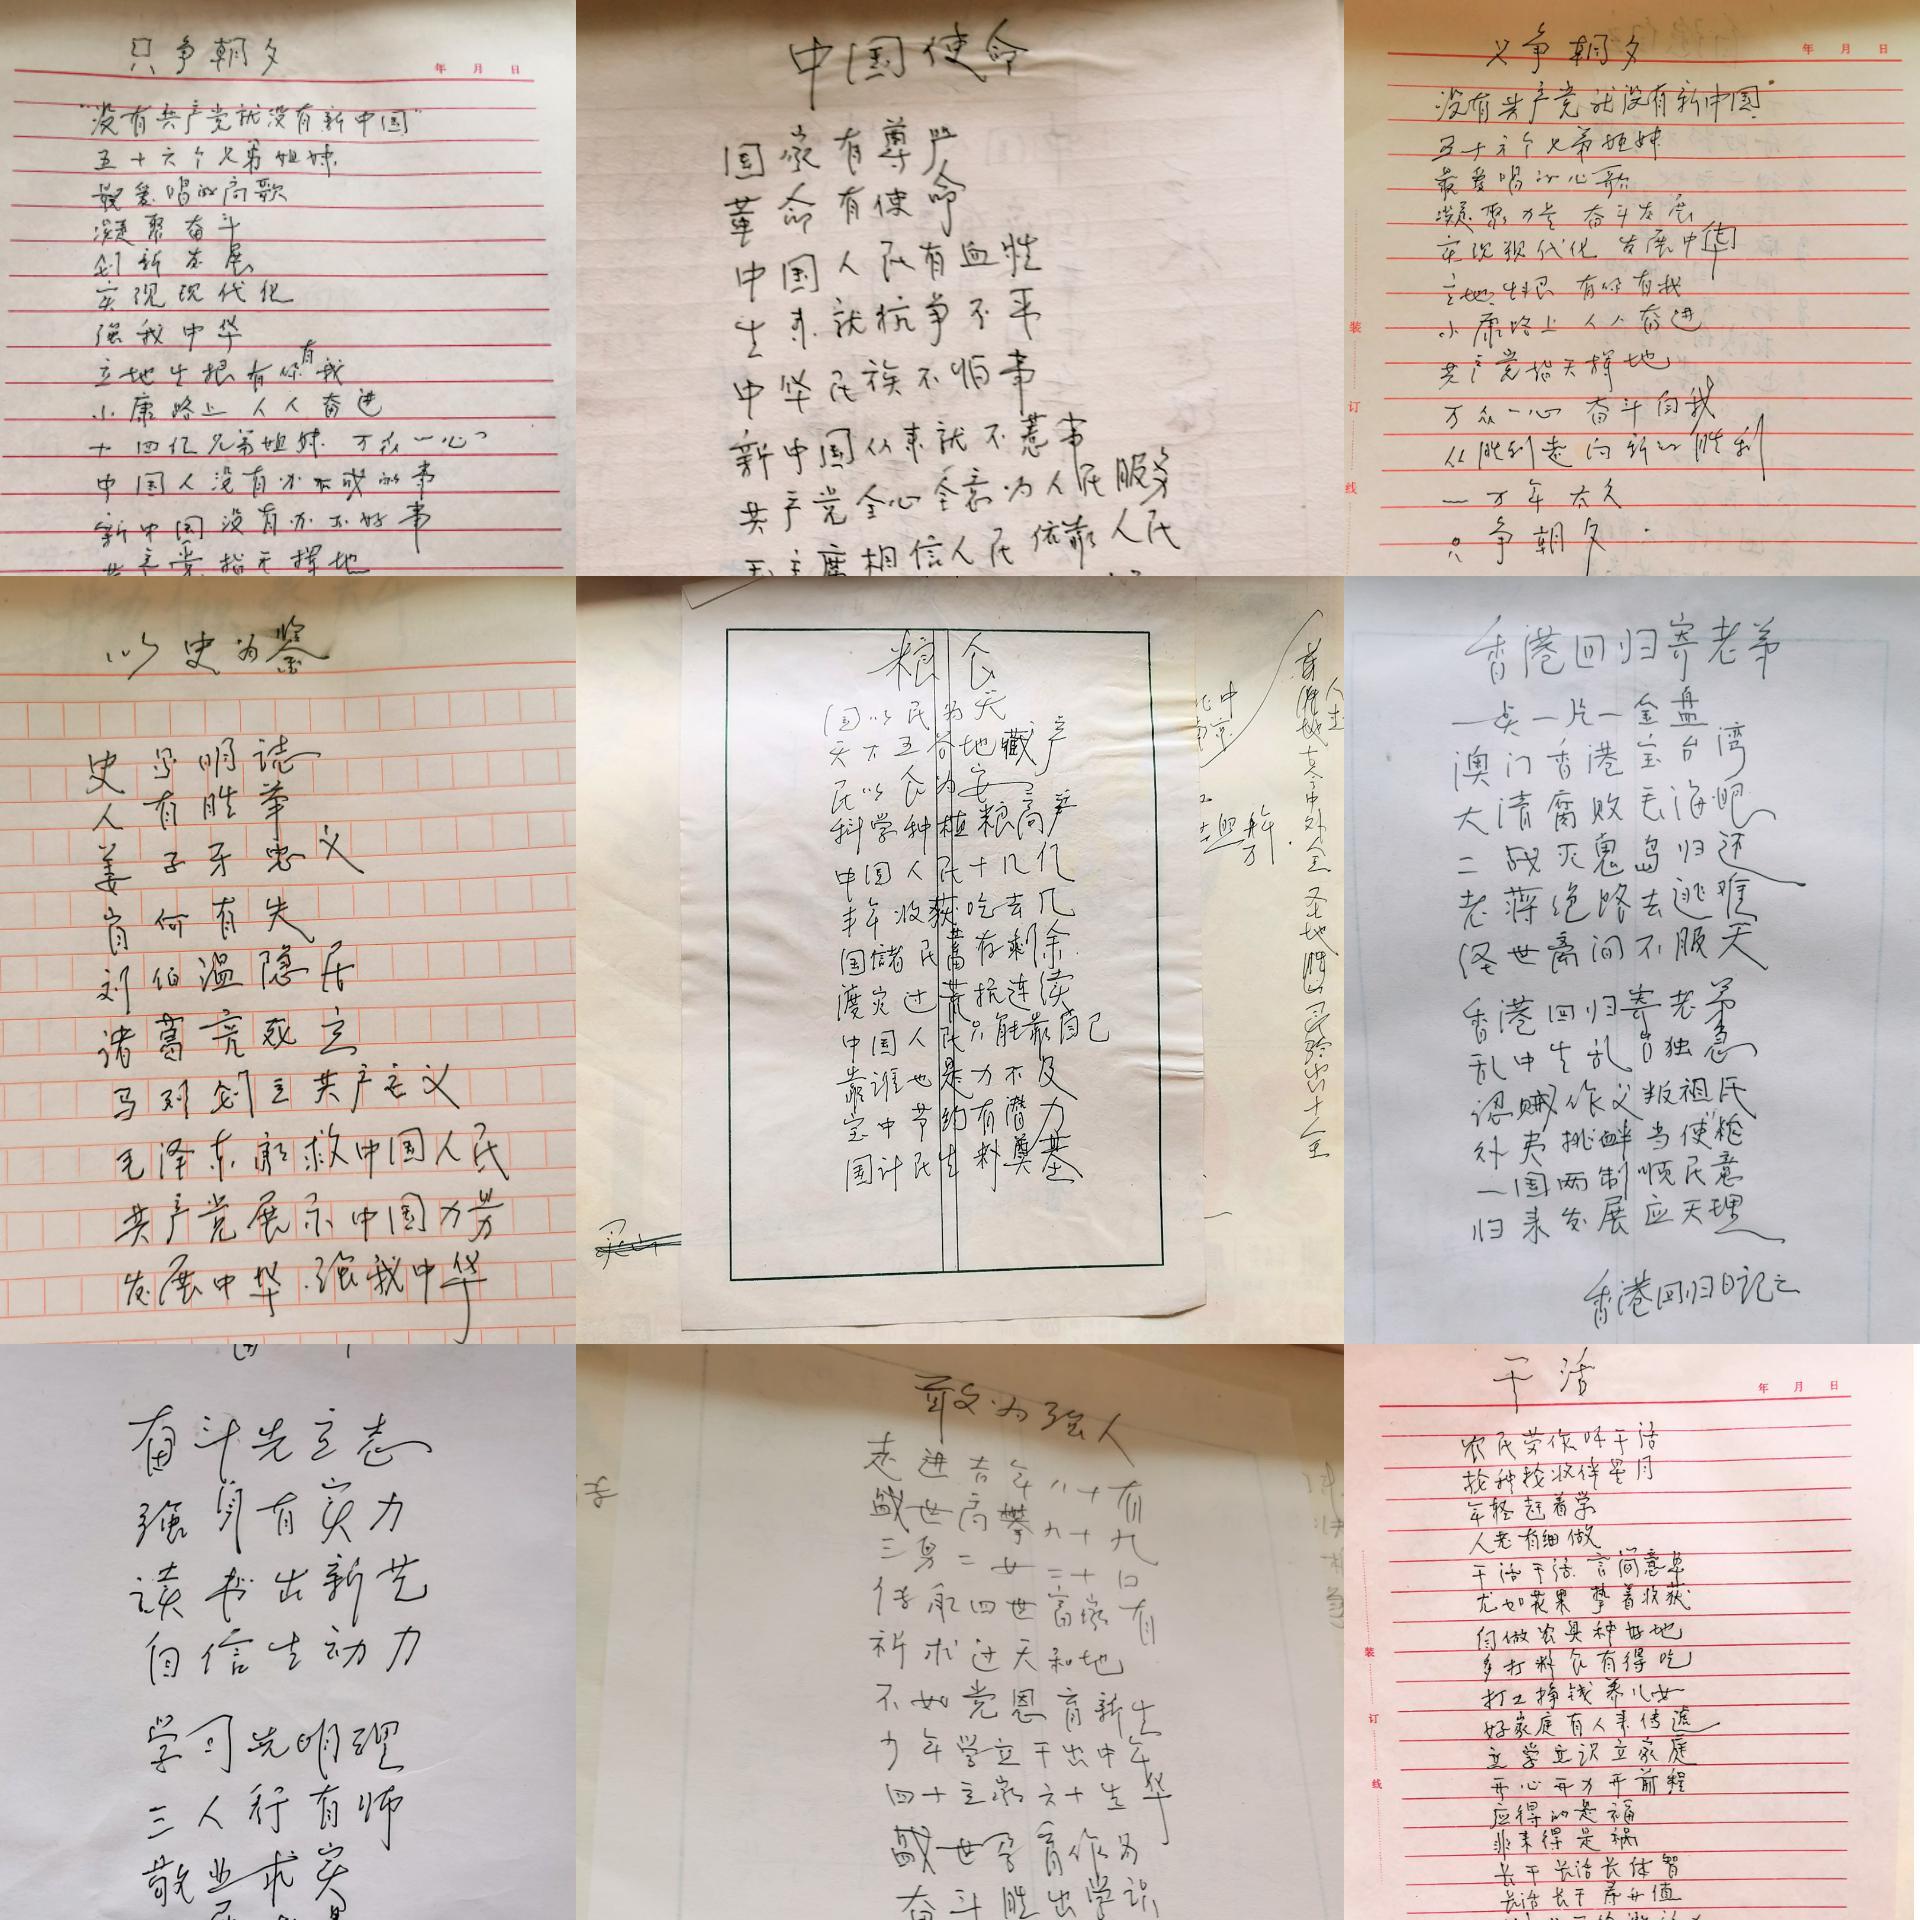 只争朝夕
年 月 日
"没有共产党就没有新中国"
五十六个兄弟姐妹
最爱唱的高歌
凝聚奋斗
创新发展
实现现代化
强我中华
立地生根有你有我
小康路上 人人奋进
十四亿兄弟姐妹 万众一心
中国人没有办不成的事
新中国没有办不好事
共产党指天挥地
中国使命
国家有尊严
革命有使命
中国人民有血性
生来就抗争不平
中华民族不怕事
新中国从来就不惹事
共产党全心全意为人民服务
毛主席相信人民依靠人民
只争朝夕
年 月 日
没有共产党就没有新中国"
五十六个兄弟姐妹
最爱唱的心歌
凝聚力量 奋斗发展
实现现代化 发展中华
立地生根 有你有我
小康路上 人人奋进
共产党指天挥地
万众一心 奋斗自我
从胜利走向新的胜利
一万年太久
只争朝夕
装
订
线
以史为鉴
史学明志
人有胜举
姜子牙忠义
肖何有失
刘伯温隐居
诸葛亮死立
马列创立共产主义
毛泽东解救中国人民
共产党展示中国力势
发展中华 强我中华
粮食
国以民为天
天下五谷地藏产
民以食为安
科学种植粮高产
中国人民十几亿
丰年收获吃去几
国储民蓄存剩余
渡灾过荒抗连续
中国人民只能靠自己
靠谁也是力不及
宝中节约有潜力
国计民生料奠基
香港回归寄老弟
一点一片一金盘
澳门香港宝台湾
大清腐败毛海吧
二战灭鬼岛归还
老蒋绝路去逃难
怪世离间不服天
香港回归寄老弟
乱中生乱台独急
认贼作父叛祖氏
外夷挑衅当使枪
一国两制顺民意
归来发展应天理
香港回归日记之
奋斗先立志
强身有实力
读书出新艺
自信生动力
学习先明理
三人行有师
敬业求实
敢为强人
走进古年八十有
盛世高攀九十九
三男二女二十口
传承四世富家有
祈求过天和地
不如党恩育新生
少年学立干出中年
四十立家六十生华
盛世孕育作为
奋斗胜出学识
干活
年 月 日
农民劳作叫干活
抢种抢收伴星月
年轻赶着学
人老有细做
干活干活 言简意单
尤如花果 挚着收获
自做农具种好地
多打粮食有得吃
打工挣钱养儿女
好家庭有人来传递
立学立识立家庭
开心开力开前程
应得的是福
非来得是祸
长干长活长体智
长活长干存升值
装
订
线